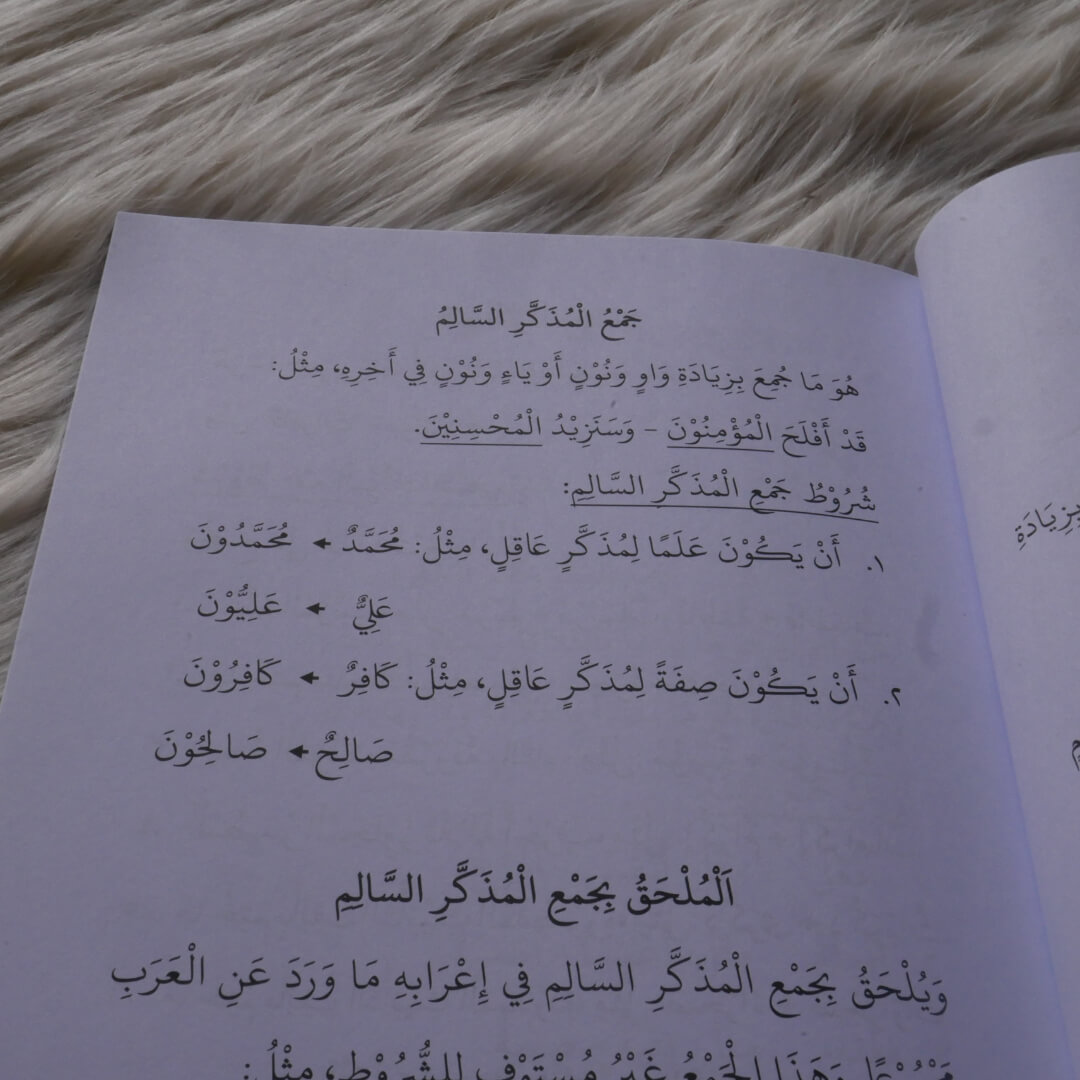 جَمْعُ الْمُذَكَّرِ السَّالِمُ
هُوَ مَا جُمِعَ بِزِيَادَةِ وَاوٍ وَنُوْنٍ أَوْ يَاءٍ وَنُوْنٍ فِي أَخِرِهِ، مِثْلُ:
قَدْ أَفْلَحَ الْمُؤْمِنُوْنَ - وَسَنَزِيْدُ الْمُحْسِنِيْنَ.
شُرُوْطُ جَمْعِ الْمُذَكَّرِ السَّالِمِ:
١. أَنْ يَكُوْنَ عَلَمًا لِمُذَكَّرٍ عَاقِلٍ، مِثْلُ: مُحَمَّدٌ ← مُحَمَّدُوْنَ
عَلِيٌّ ← عَلِيُّوْنَ
٢. أَنْ يَكُوْنَ صِفَةً لِمُذَكَّرٍ عَاقِلٍ، مِثْلُ: كَافِرٌ ← كَافِرُوْنَ
صَالِحٌ ← صَالِحُوْنَ
اَلْمُلْحَقُ بِجَمْعِ الْمُذَكَّرِ السَّالِمِ
وَيُلْحَقُ بِجَمْعِ الْمُذَكَّرِ السَّالِمِ فِي إِعْرَابِهِ مَا وَرَدَ عَنِ الْعَرَبِ
وَهَذَا الْجَمْعُ غَيْرُ مُسْتَوْفٍ لِلشُّرُوْطِ، مِثْلُ:
بِزِيَادَةِ